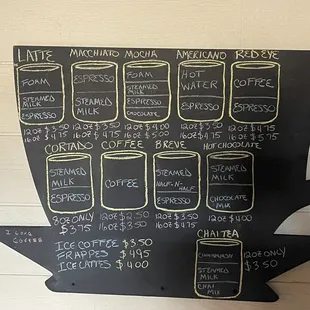 LATTE MACCHIATO MOCHA AMERICANO RED EYE
FOAM
STEAMED
MILK
ESPRESSO
ESPRESSO
STEAMED
MILK
FOAM
STEAMED
MILK
ESPRESSO
CHOCOLATE
HOT
WATER
ESPRESSO
COFFEE
ESPRESSO
12oz $3.50
16oz $4
12oz $3.50
16oz $4.75
12oz $4.00
16oz $5.00
12oz $3.50
16oz $4.75
12oz $4.75
16oz $5.75
CORTADO COFFEE BREVE HOT CHOCOLATE
STEAMED
MILK
ESPRESSO
COFFEE
STEAMED
HALF-N-
HALF
ESPRESSO
STEAMED
MILK
CHOCOLATE
MILK
8oz ONLY
$3.75
12oz $2.50
16oz $3.50
12oz $3.50
16oz $4.75
12oz $4.00
ICE COFFEE $3.50
FRAPPES $4.95
ICE LATTES $4.00
CHAI TEA
CINNAMON
STEAMED
MILK
CHAI
MIX
12oz ONLY
$3.50